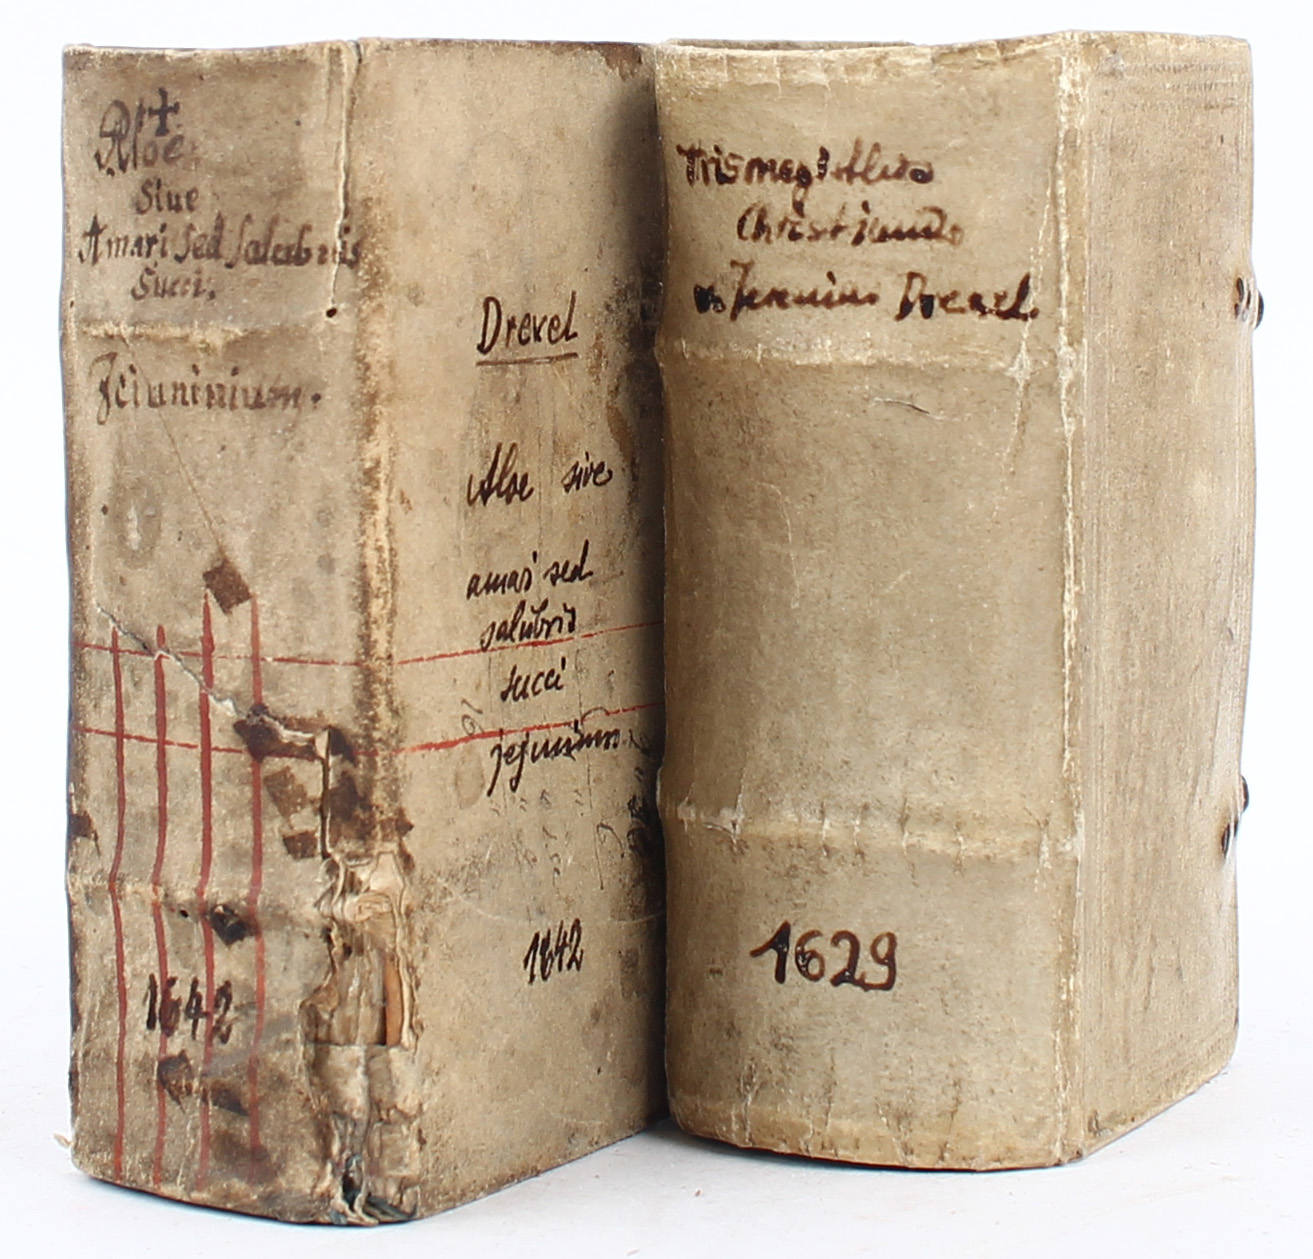 Aloe
Siue
Amari sed salubris
Succi,
Jeiuninium.
1642
Drexel
Aloe sive
amari sed
salubris
succi
jejunium
1642
Trismegistus
Christianus
Jeremias Drexel.
1629